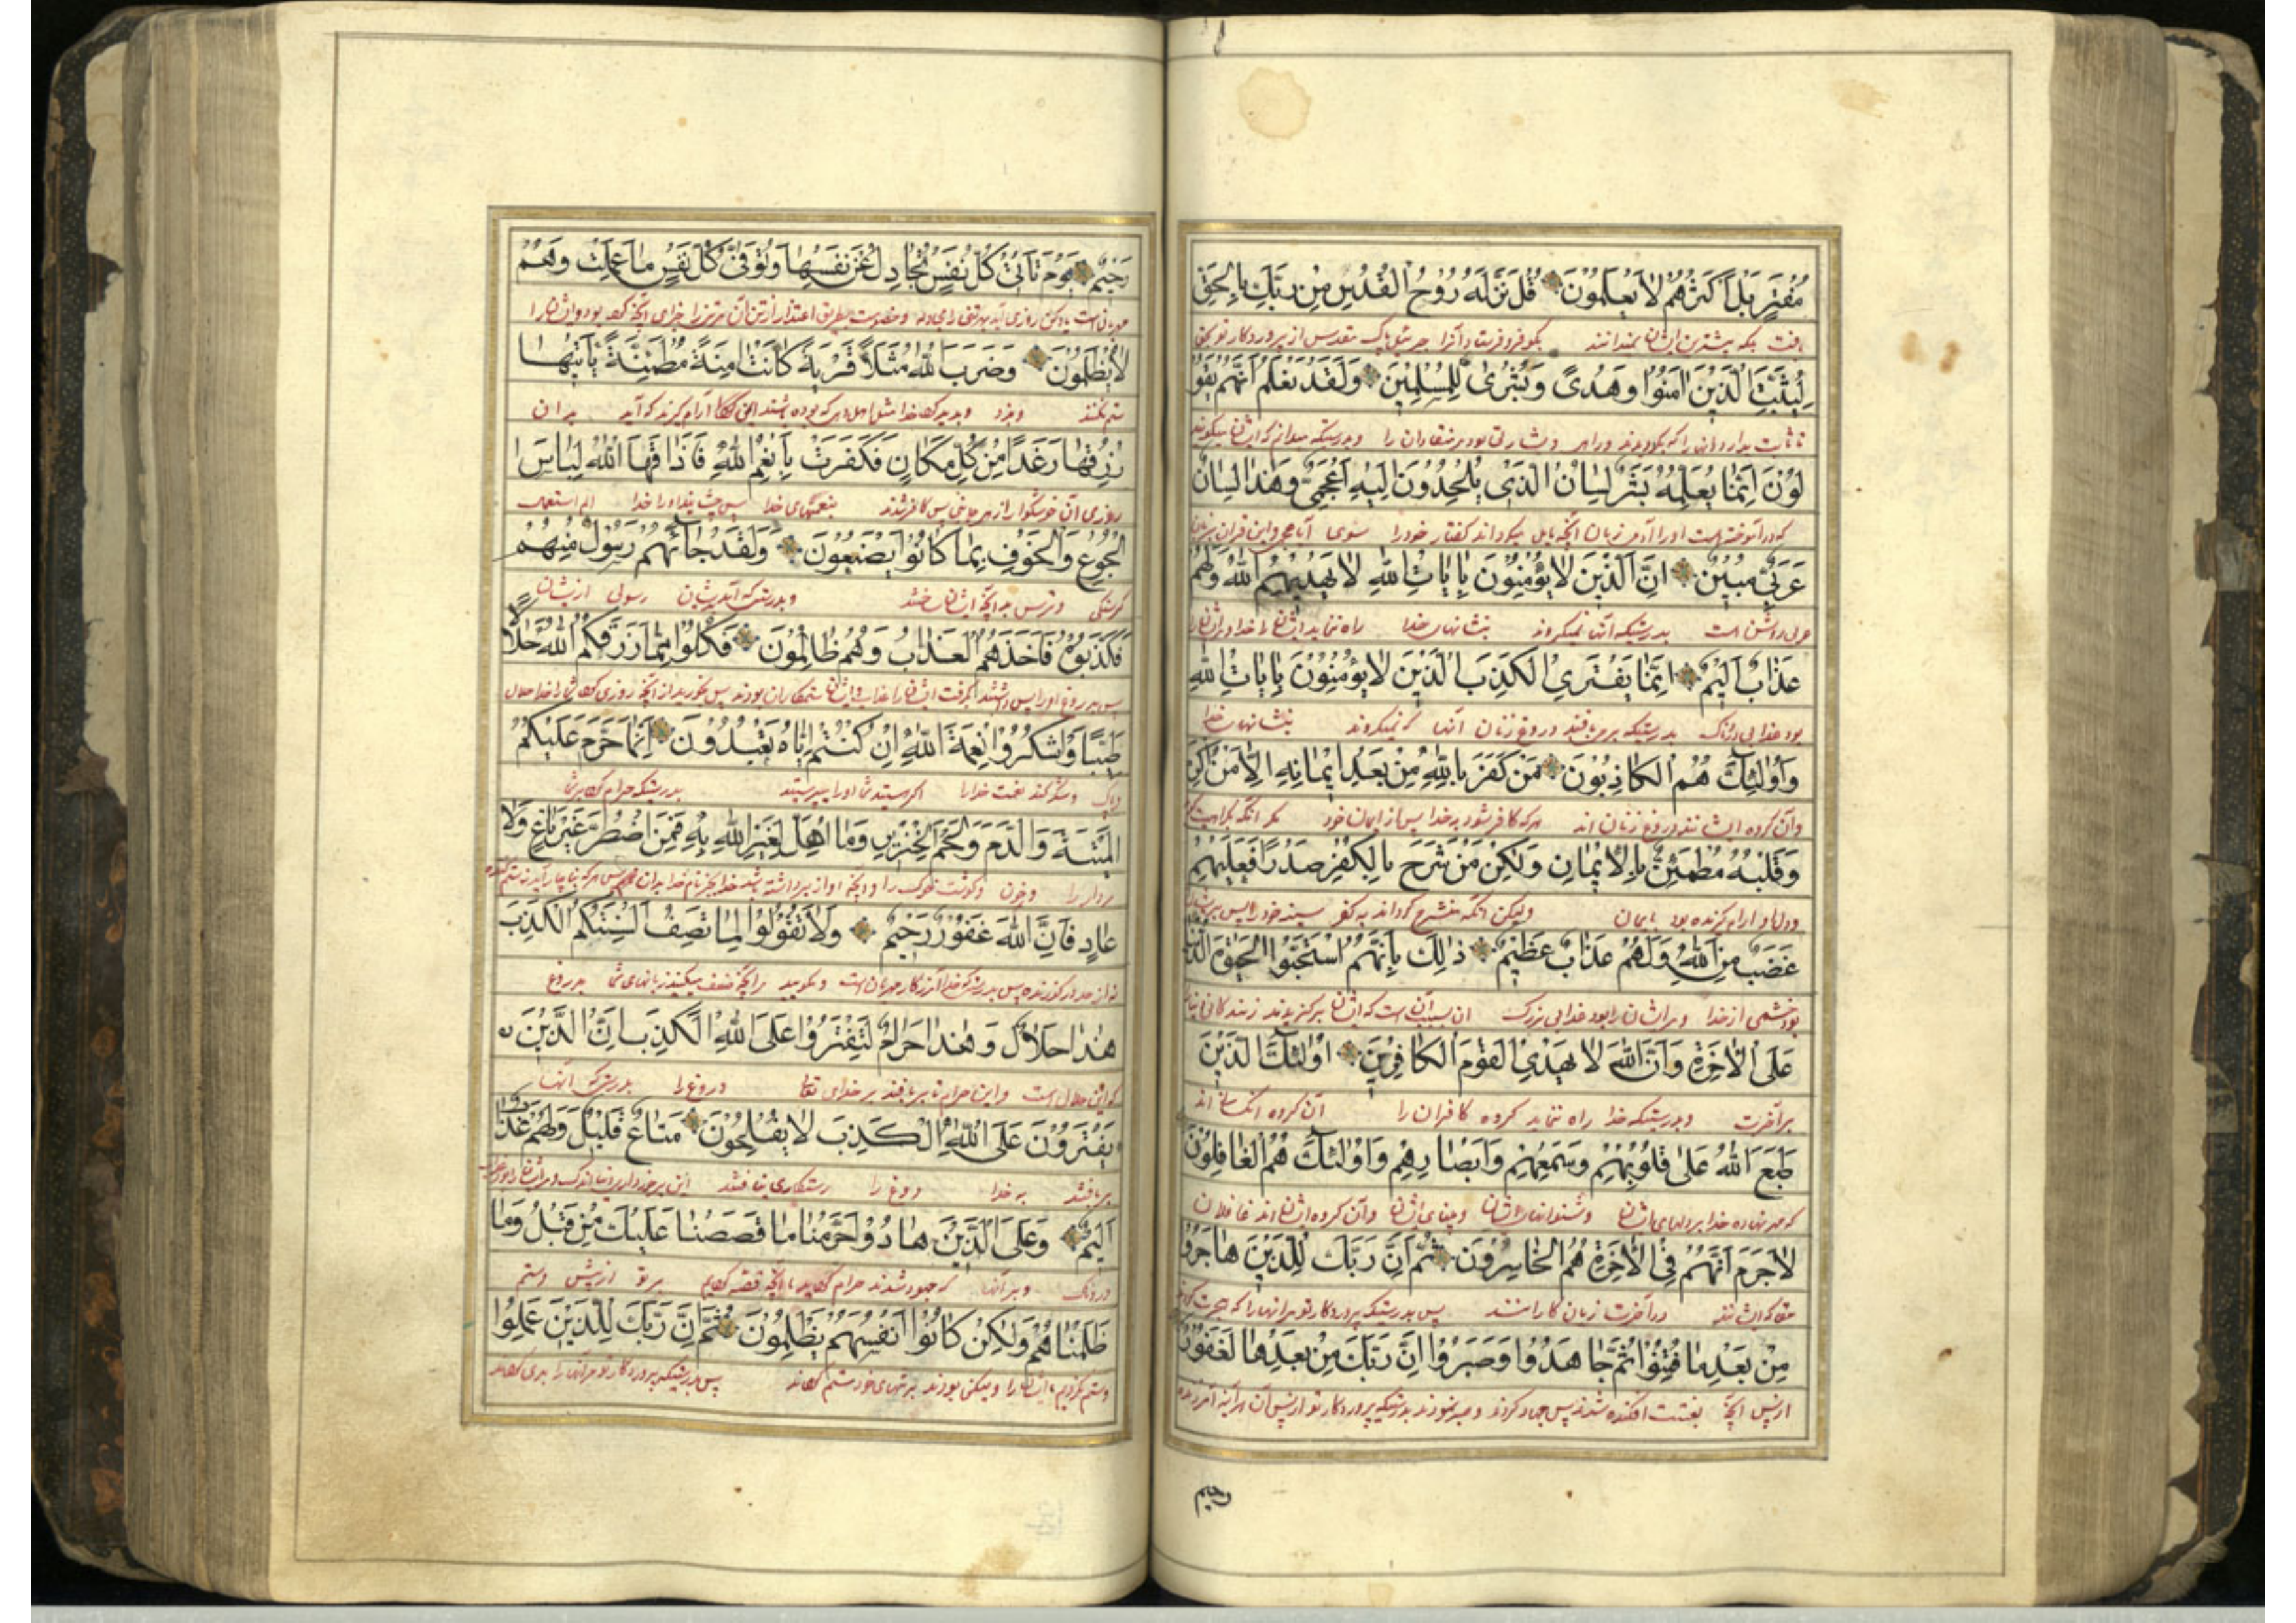 مُفْتَرٍ بَلْ اَكْثَرُهُمْ لَا يَعْلَمُوْنَ قُلْ نَزَّلَهُ رُوْحُ الْقُدُسِ مِنْ رَبِّكَ بِالْحَقِّ
بافت بلکه بیشترین ایشان نمیدانند بگو فرو فرستاد آنرا جبرئیل پاک مقدس از پروردگار تو بحق
لِيُثَبِّتَ الَّذِيْنَ اٰمَنُوْا وَهُدًى وَبُشْرٰى لِلْمُسْلِمِيْنَ وَلَقَدْ نَعْلَمُ اَنَّهُمْ يَقُوْ
تا ثابت بدارد آنان را که بگرویدند و راه و بشارتی بود مر منقادان را و بدرستیکه میدانم که ایشان میگویند
لُوْنَ اِنَّمَا يُعَلِّمُهُ بَشَرٌ لِسَانُ الَّذِيْ يُلْحِدُوْنَ اِلَيْهِ اَعْجَمِيٌّ وَهٰذَا لِسَانٌ
آموخته است او را آدمی زبان آنکه مایل میگرداند گفتار خود را سوی آن و این قرآن بزبان
عَرَبِيٌّ مُبِيْنٌ اِنَّ الَّذِيْنَ لَا يُؤْمِنُوْنَ بِاٰيَاتِ اللّٰهِ لَا يَهْدِيْهِمُ اللّٰهُ وَلَهُمْ
عربی روشن است بدرستیکه آنها نمیگروند بنشانهای خدا راه ننماید ایشان را خدا و مر ایشان را
عَذَابٌ اَلِيْمٌ اِنَّمَا يَفْتَرِى الْكَذِبَ الَّذِيْنَ لَا يُؤْمِنُوْنَ بِاٰيَاتِ اللّٰهِ
بود عذابی دردناک بدرستیکه بر می بافند دروغ زنان آنها که نمیگروند بنشانهای خدا
وَاُوْلٰئِكَ هُمُ الْكَاذِبُوْنَ مَنْ كَفَرَ بِاللّٰهِ مِنْ بَعْدِ اِيْمَانِهِ اِلَّا مَنْ اُكْرِ
و آن گروه ایشانند دروغ زنان اند هر که کافر شود به خدا پس از ایمان خود مگر آنکه
وَقَلْبُهُ مُطْمَئِنٌّ بِالْاِيْمَانِ وَلٰكِنْ مَنْ شَرَحَ بِالْكُفْرِ صَدْرًا فَعَلَيْهِمْ
و دل او آرام گیرنده بود بایمان ولیکن آنکه منشرح گرداند به کفر سینه خود را پس بر ایشان
غَضَبٌ مِنَ اللّٰهِ وَلَهُمْ عَذَابٌ عَظِيْمٌ ذٰلِكَ بِاَنَّهُمُ اسْتَحَبُّوا الْحَيٰوةَ الدُّنْيَا
بود خشمی از خدا و مر ایشان را بود عذابی بزرگ این بسبب آن است که ایشان برگزیدند زندگانی دنیا
عَلَى الْاٰخِرَةِ وَاَنَّ اللّٰهَ لَا يَهْدِى الْقَوْمَ الْكَافِرِيْنَ اُوْلٰئِكَ الَّذِيْنَ
بر آخرت و بدرستیکه خدا راه ننماید گروه کافران را آن گروه آنکسانند
طَبَعَ اللّٰهُ عَلٰى قُلُوْبِهِمْ وَسَمْعِهِمْ وَاَبْصَارِهِمْ وَاُوْلٰئِكَ هُمُ الْغَافِلُوْنَ
که مهر نهاده خدا بر دلهای ایشان و شنوائیهای ایشان و بینای ایشان و آن گروه ایشان اند غافلان
لَا جَرَمَ اَنَّهُمْ فِى الْاٰخِرَةِ هُمُ الْخَاسِرُوْنَ ثُمَّ اِنَّ رَبَّكَ لِلَّذِيْنَ هَاجَرُوْا
حقا که ایشانند در آخرت زیان کارانند پس بدرستیکه پروردگار تو مر آنها را که هجرت کردند
مِنْ بَعْدِ مَا فُتِنُوْا ثُمَّ جَاهَدُوْا وَصَبَرُوْا اِنَّ رَبَّكَ مِنْ بَعْدِهَا لَغَفُوْرٌ
از پس آنکه بفتنت افکنده شدند پس جهاد کردند و صبر نمودند بدرستیکه پروردگار تو از پس آن هر آینه آمرزنده
رحیم
رَحِيْمٌ يَوْمَ تَأْتِيْ كُلُّ نَفْسٍ تُجَادِلُ عَنْ نَفْسِهَا وَتُوَفّٰى كُلُّ نَفْسٍ مَا عَمِلَتْ وَهُمْ
مهربانست یاد کن روزی آید هر تنی را مجادله و خصومت بطریق اعتذار از تن آن هر تن را جزای آنچه بود و ایشان را
لَا يُظْلَمُوْنَ وَضَرَبَ اللّٰهُ مَثَلًا قَرْيَةً كَانَتْ اٰمِنَةً مُطْمَئِنَّةً يَاْتِيْهَا
ستم نکنند و بزد خدا مثل اهل که بوده آرام گیرند که آید بدان
رِزْقُهَا رَغَدًا مِنْ كُلِّ مَكَانٍ فَكَفَرَتْ بِاَنْعُمِ اللّٰهِ فَاَذَاقَهَا اللّٰهُ لِبَاسَ
روزی آن خوشگوار از هر جای پس کافر شدند بنعمتهای خدا پس چشانید او را خدا
الْجُوْعِ وَالْخَوْفِ بِمَا كَانُوْا يَصْنَعُوْنَ وَلَقَدْ جَاۤئَهُمْ رَسُوْلٌ مِنْهُمْ
گرسنگی و ترس به آنچه ایشان و بدرستیکه آمد بدیشان رسولی از ایشان
فَكَذَّبُوْهُ فَاَخَذَهُمُ الْعَذَابُ وَهُمْ ظَالِمُوْنَ فَكُلُوْا مِمَّا رَزَقَكُمُ اللّٰهُ حَلَالًا
پس بدروغ او را پس بگرفت ایشان را عذاب و ایشان ستمکاران بودند پس بخورید از آنچه روزی شما را خدا حلال
طَيِّبًا وَاشْكُرُوْا نِعْمَةَ اللّٰهِ اِنْ كُنْتُمْ اِيَّاهُ تَعْبُدُوْنَ اِنَّمَا حَرَّمَ عَلَيْكُمُ
و پاک و شکر کنید نعمت خدا را اگر هستید شما او را بپرستید بدرستیکه حرام بر شما
الْمَيْتَةَ وَالدَّمَ وَلَحْمَ الْخِنْزِيْرِ وَمَا اُهِلَّ لِغَيْرِ اللّٰهِ بِهِ فَمَنِ اضْطُرَّ غَيْرَ بَاغٍ وَلَا
مردار را و خون و گوشت خوک را و آنچه آواز برداشته بجز نام خدا بدان پس هر که
عَادٍ فَاِنَّ اللّٰهَ غَفُوْرٌ رَحِيْمٌ وَلَا تَقُوْلُوْا لِمَا تَصِفُ اَلْسِنَتُكُمُ الْكَذِبَ
نه از حد درگذرنده پس بدرستیکه خدا آمرزگار مهربان است و مگویید مر آنچه وصف میکنند زبانهای شما دروغ
هٰذَا حَلَالٌ وَهٰذَا حَرَامٌ لِتَفْتَرُوْا عَلَى اللّٰهِ الْكَذِبَ اِنَّ الَّذِيْنَ
که این حلال است و این حرام تا بر بافند بر خدای دروغ را بدرستیکه آنها
يَفْتَرُوْنَ عَلَى اللّٰهِ الْكَذِبَ لَا يُفْلِحُوْنَ مَتَاعٌ قَلِيْلٌ وَلَهُمْ عَذَابٌ
بر بافند به خدا دروغ را رستگاری نیافتند این برخورداری اندک و مر ایشان را بود
اَلِيْمٌ وَعَلَى الَّذِيْنَ هَادُوْا حَرَّمْنَا مَا قَصَصْنَا عَلَيْكَ مِنْ قَبْلُ وَمَا
دردناک و بر آنها که جهود شدند حرام آنچه قصه بر تو از پیش و ستم
ظَلَمْنَاهُمْ وَلٰكِنْ كَانُوْا اَنْفُسَهُمْ يَظْلِمُوْنَ ثُمَّ اِنَّ رَبَّكَ لِلَّذِيْنَ عَمِلُوْا
و ستم نکردیم ایشان را ولیکن بودند بر تنهای خود ستم پس بدرستیکه پروردگار تو مر آنها را بدی